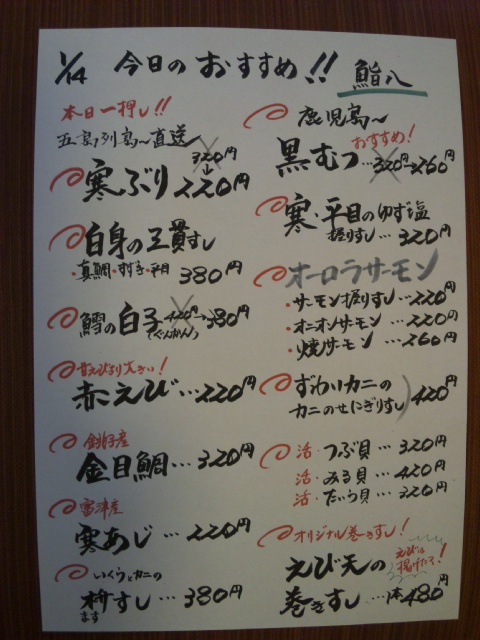 1/14 今日のおすすめ!! 鮨八
本日一押し!!
五島列島〜直送
寒ぶり 320円→220円
白身の三貫すし
・真鯛・すずき・平目 380円
鱈の白子 420円→380円
(ぐんかん)
甘えびより大きい!
赤えび…220円
銚子産
金目鯛…320円
富津産
寒あじ…220円
いくらとカニの
枡すし…380円
ます
鹿児島〜
おすすめ!
黒むつ…320円→260円
寒・平目のゆず塩
握りすし…320円
オーロラサーモン
・サーモン握りすし…220円
・オニオンサーモン…220円
・焼サーモン…260円
ずわいカニの
カニのせにぎりすし 420円
活・つぶ貝…320円
活・みる貝…420円
活・たいら貝…320円
オリジナル巻きすし!
えびは
揚げたて!
えび天の
巻きすし…1本480円